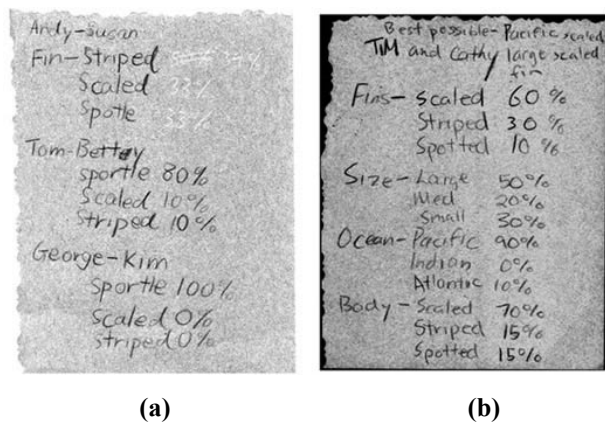 Andy-Susan
Fin-Striped
Scaled 33%
Spotle 33%
Tom-Bettey
Sportle 80%
Scaled 10%
Striped 10%
George-Kim
Sportle 100%
scaled 0%
striped 0%
(a)
Best possible- Pacific scaled
TIM and Cathy large scaled
fin
Fins- Scaled 60%
Striped 30%
Spotted 10%
Size- Large 50%
Med 20%
Small 30%
Ocean- Pacific 90%
Indian 0%
Atlantic 10%
Body- Scaled 70%
Striped 15%
Spotted 15%
(b)